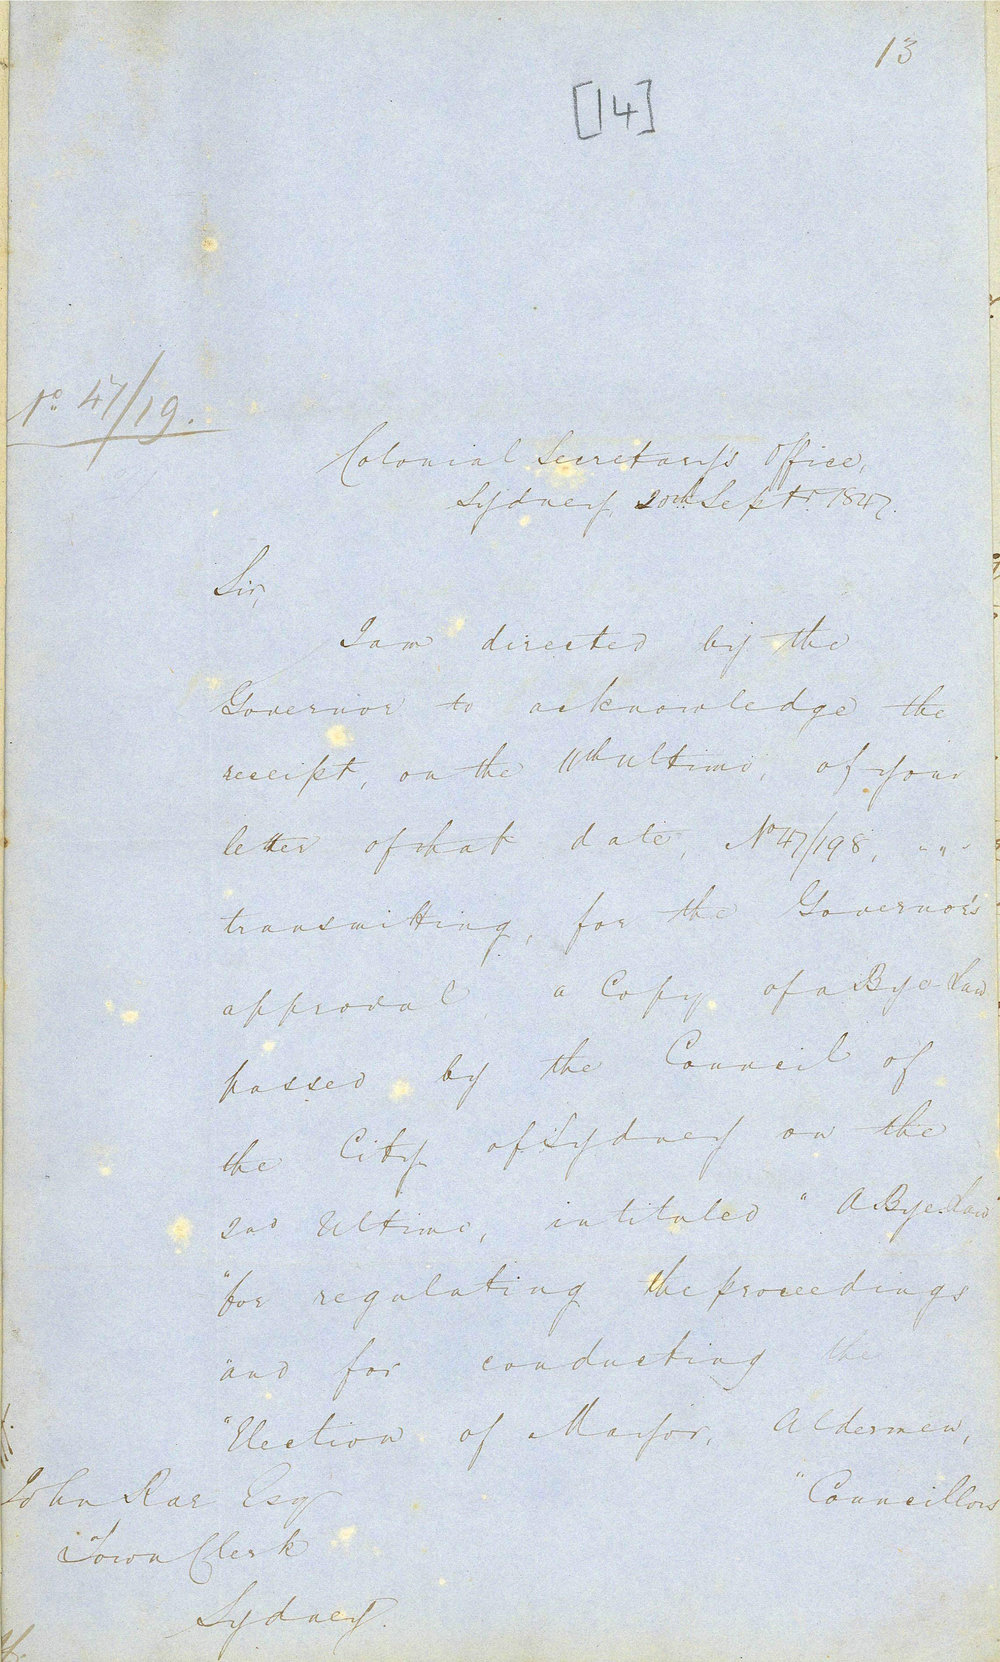 13
[14]
No. 47/19.
Colonial Secretary's Office,
Sydney, 20th Septr. 1847.
Sir,
I am directed by the
Governor to acknowledge the
receipt, on the 11th Ultimo, of your
letter of that date, No 47/198,
transmitting, for the Governor's
approval, a Copy of a Bye Law
passed by the Council of
the City of Sydney on the
2nd Ultimo, intituled "A Bye Law
"for regulating the proceedings
"and for conducting the
"Election of Mayor, Aldermen,
"Councillors
John Rae Esq
Town Clerk
Sydney.